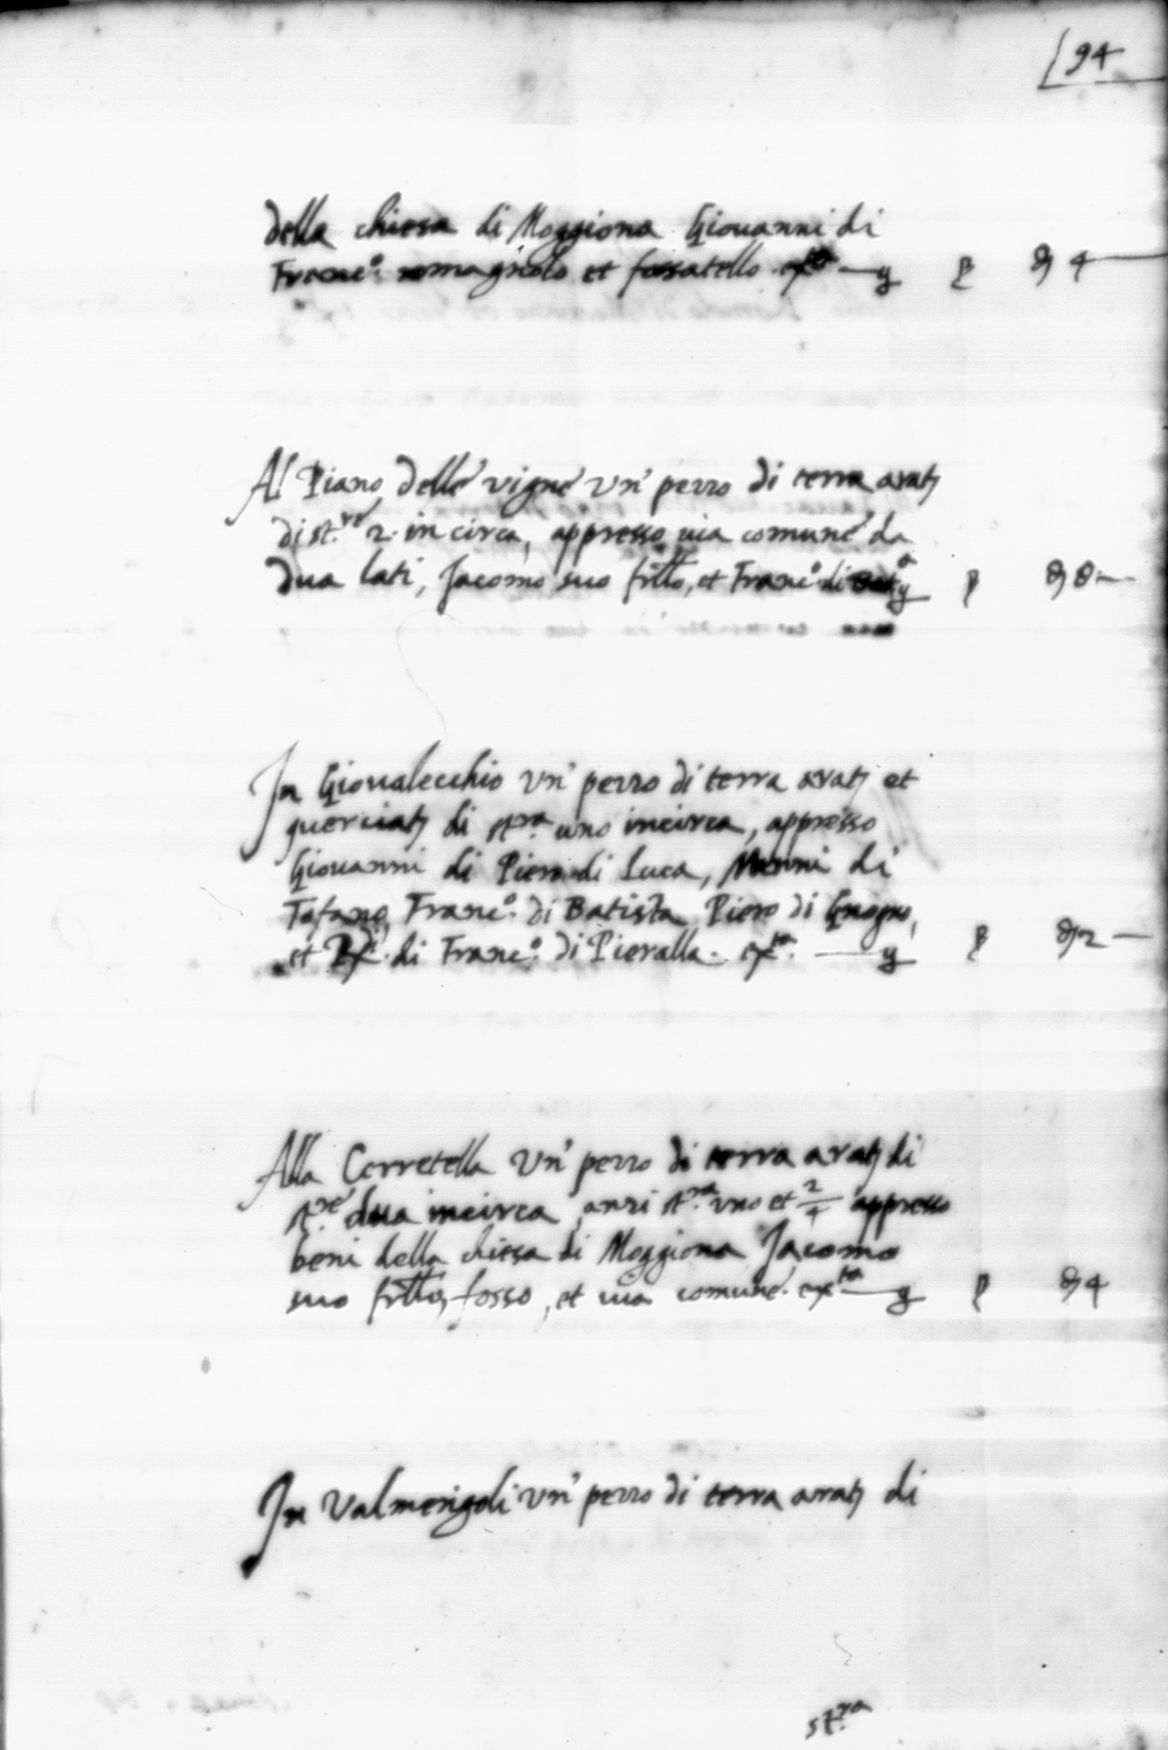 94
della chiesa di Moggiona Giouanni di
Franc.º romagnolo et fossatello. ex.ta — ꝑ 4 —
Al Piano delle vigne un' pezzo di terra arat.
di st.re 2. in circa, appresso uia comune da
dua lati, Jacomo suo frĺlo, et Franc.º di 8 —
In Giovalecchio un' pezzo di terra arat. et
querciat. di st.ra uno incirca, appresso
Giouanni di Piero di Luca, Nanni di
Tofano, Franc.º di Batista Piero di Gnogno,
et di Franc.º di Pieralla. ex.ta — ꝑ 2 —
Alla Cerretella un' pezzo di terra arat. di
st.re dua incirca, anzi st.ra uno et 2/4 appresso
beni della chiesa di Moggiona Jacomo
suo frĺlo, fosso, et uia comune. ex.ta — ꝑ 4
In Valmerigoli un' pezzo di terra arat. di
st.ra